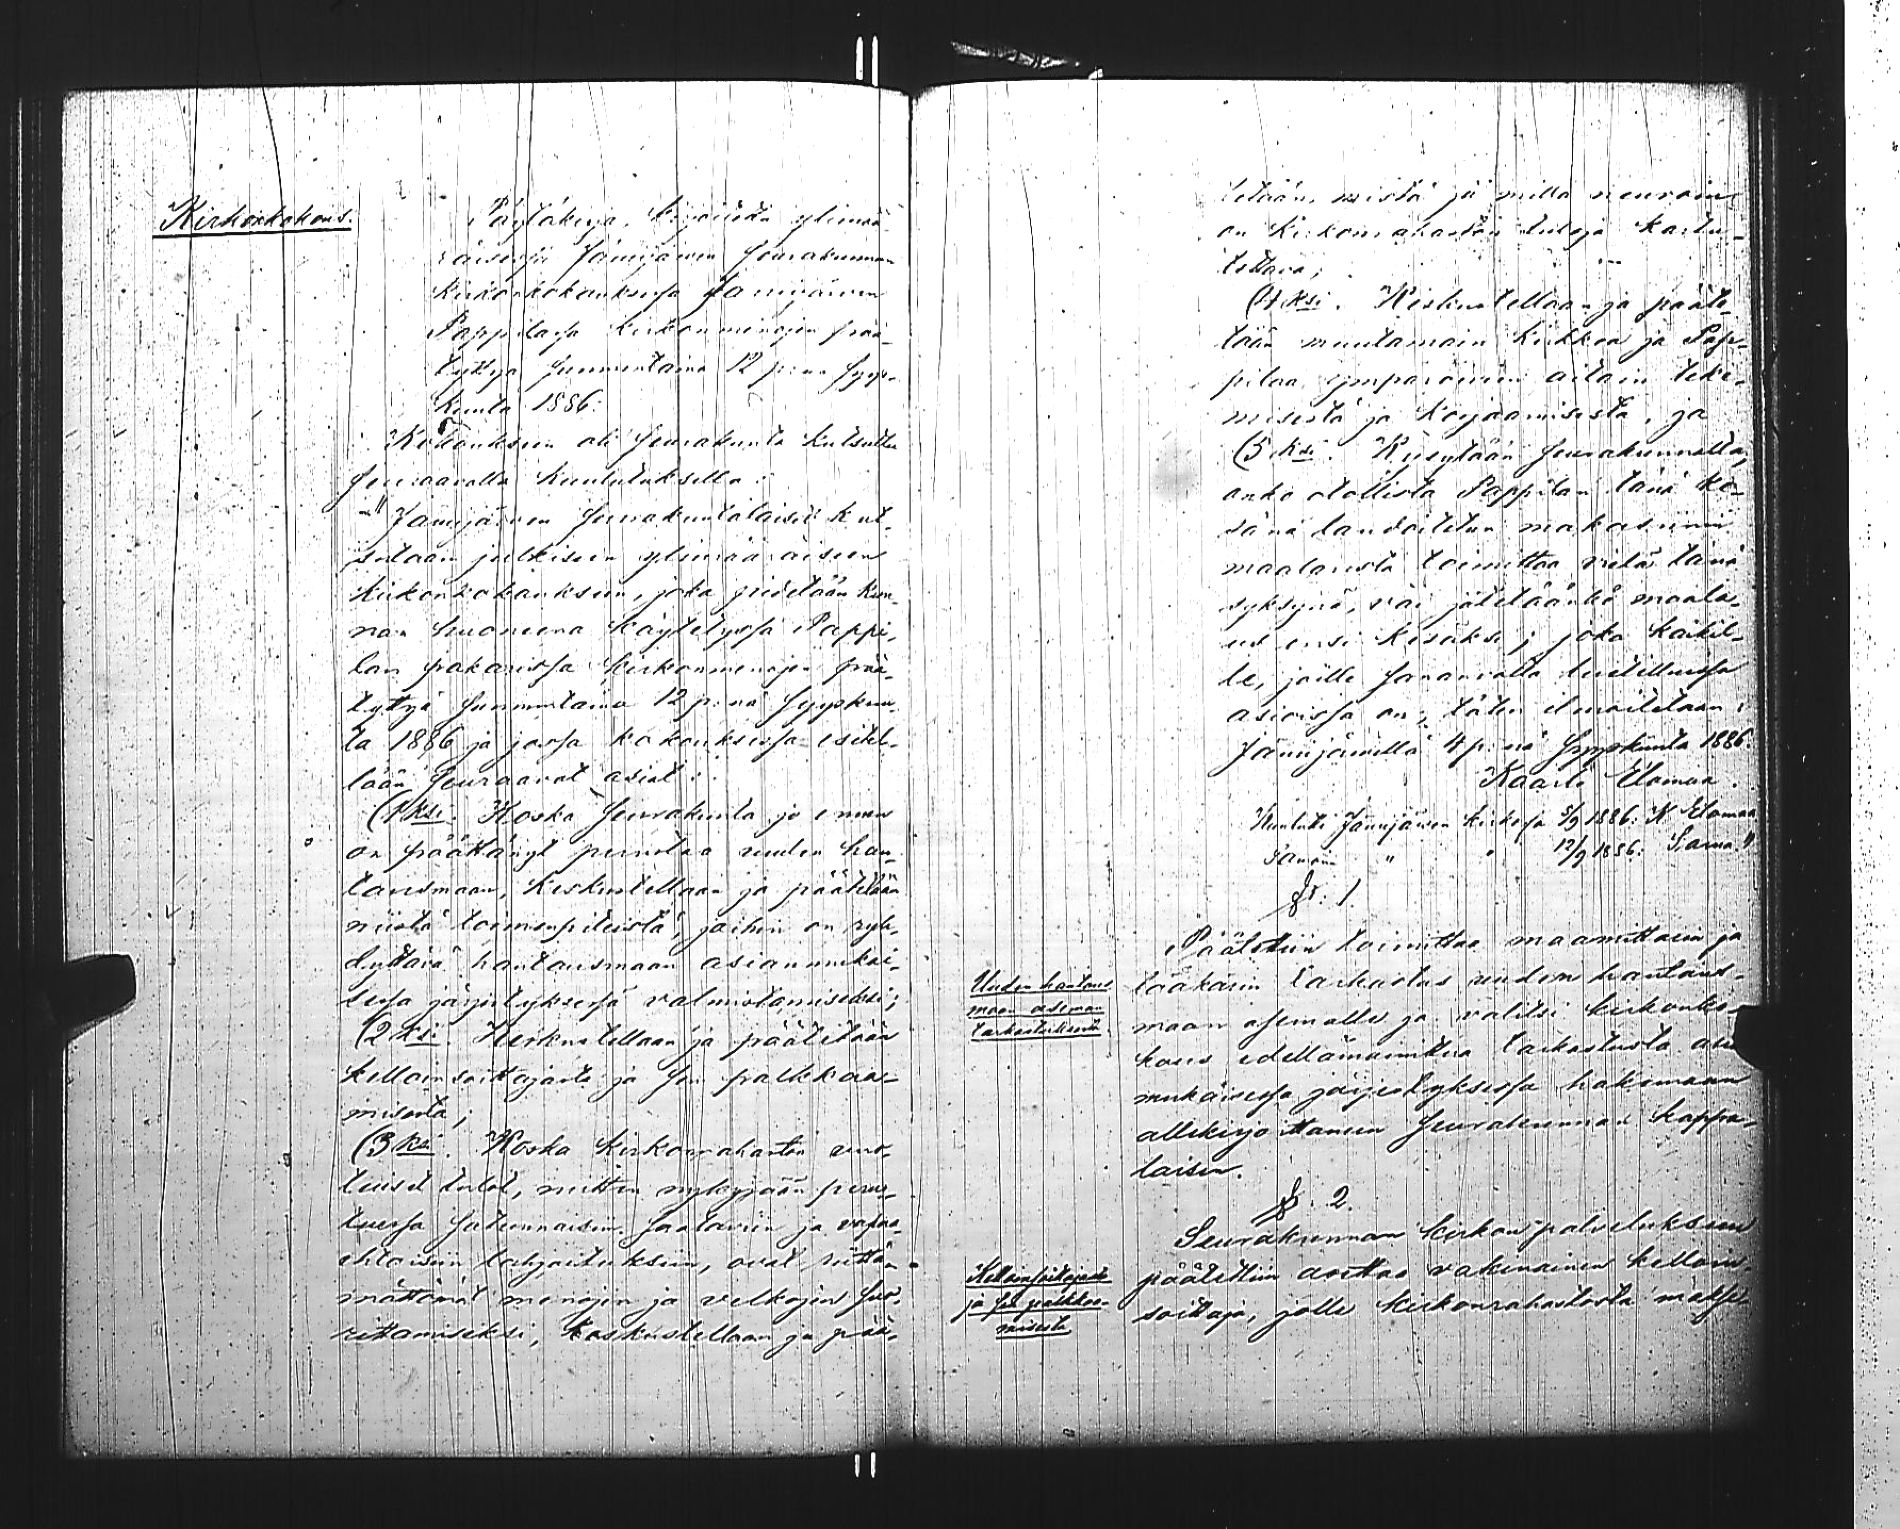 Kirkonkokous.
Pöytäkirja, kirjoitettu ylimää-
räisessä Jämijärven Seurakunnan
Kirkonkokouksessa Jämijärven
Pappilassa kirkonmenojen pää-
tyttyä Sunnuntaina 12 p:nä Syys-
kuuta 1886.
Kokoukseen oli Seurakunta kutsuttu
Seuraavalla kuulutuksella:
"Jämijärven Seurakuntalaiset kut-
sutaan julkiseen ylimääräiseen
kirkonkokoukseen, joka pidetään kun-
nan huoneena käytetyssä Pappi-
lan pakarissa kirkonmenojen pää-
tyttyä Sunnuntaina 12 p:nä Syyskuu-
ta 1886 ja jossa kokouksessa esitel-
lään Seuraavat asiat:
(1ksi. Koska Seurakunta jo ennen
on päättänyt perustaa uuden hau-
tausmaan, keskustellaan ja päätetään
niistä toimenpiteistä, joihin on ryh-
dyttävä hautausmaan asianmukai-
sessa järjestyksessä valmistamiseksi;
(2ksi. Keskustellaan ja päätetään
kelloinsoittajasta ja Sen palkkaa-
misesta;
(3ksi. Koska kirkonrahaston vuo-
tuiset tulot, mitkä nykyjään perus-
tuessa Satunnaisiin Saataviin ja vapaa-
ehtoisiin lahjoituksiin, ovat riittä-
mättömät menojen ja velkojen Suo-
rittamiseksi, keskustellaan ja pää-
tetään, mistä ja millä neuvoin
on kirkonrahaston tuloja kartu-
tettava;
(4ksi. Keskustellaan ja pääte-
tään muutamain kirkkoa ja Pap-
pilaa ympäröivien aitain teke-
misestä ja korjaamisesta, ja
(5ksi. Kysytään Seurakunnalta,
onko otollista Pappilan tänä ke-
sänä laudoitetun makasiinin
maalausta toimittaa vielä tänä
syksynä, vai jätetäänkö maala-
us ensi kesäksi; joka kaikil-
le, joille Sananvalta luetelluissa
asioissa on, täten ilmoitetaan.
Jämijärvellä 4 p:nä Syyskuuta 1886.
Kaarlo Elomaa.
Kuulutti Jämijärven kirkossa 5/9 1886: K Elomaa
Samoin " " 12/9 1886: Sama."
§. 1.
Uuden hautaus
maan aseman
tarkastuksesta.
Päätettiin toimittaa maamittarin ja
lääkärin tarkastus uuden hautaus-
maan asemalle ja valitsi kirkonko-
kous edellämainittua tarkastusta
mukaisessa järjestyksessä hakemaan
allekirjoittaneen Seurakunnan kappa-
laisen.
§. 2.
Kelloinsoittajasta
ja Sen palkkaa-
misesta
Seurakunnan kirkon palvelukseen
päätettiin asettaa vakinainen kelloin-
soittaja, jolle kirkonrahastosta makse-